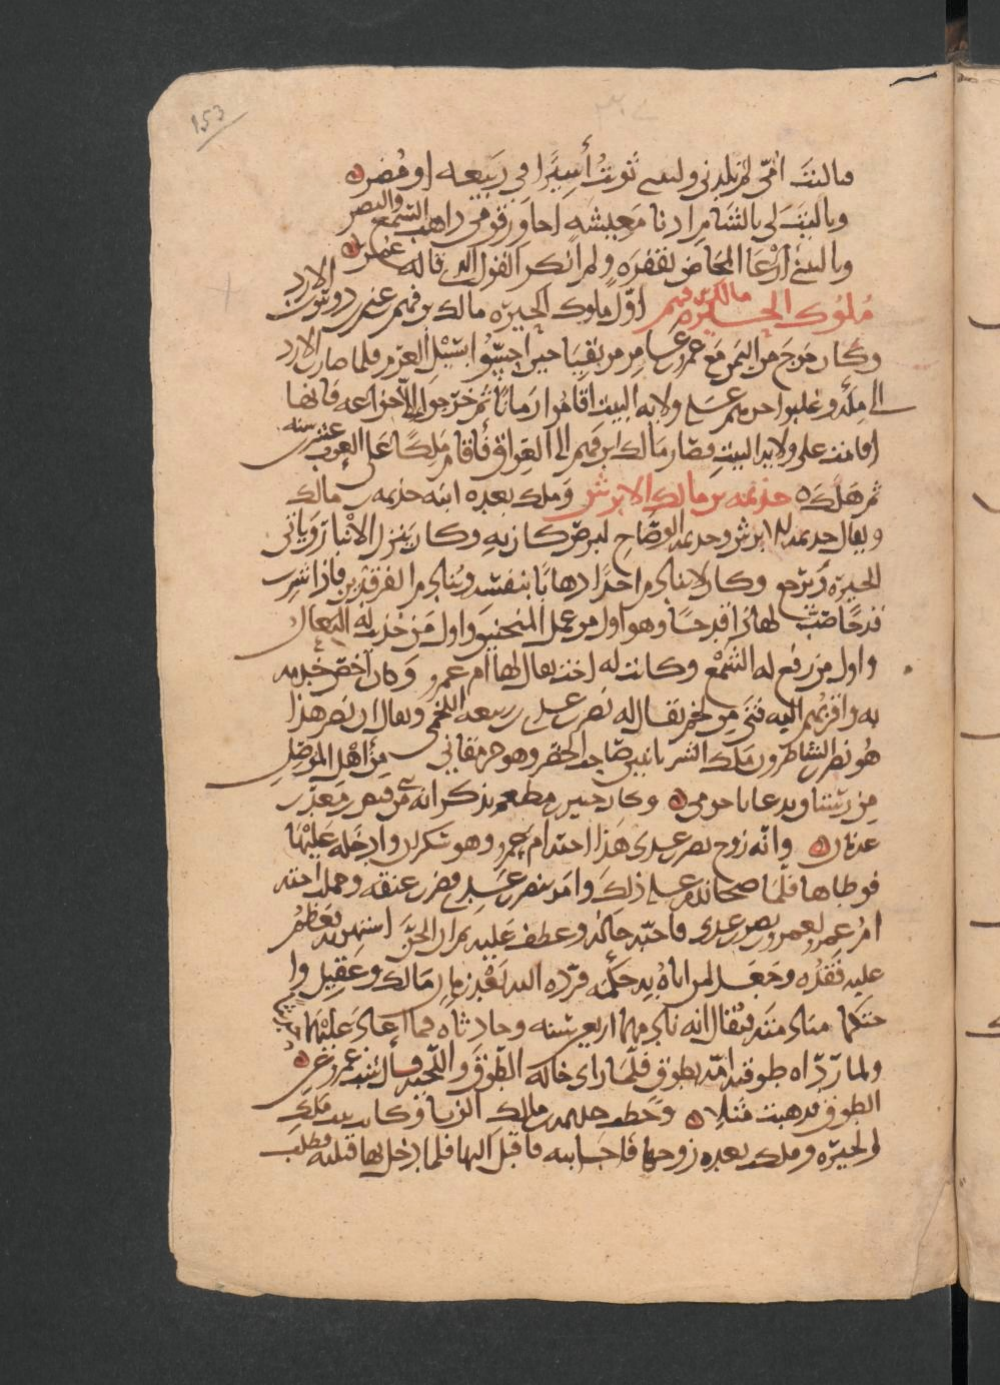 153
فياليت امّي لم تلدني وليتني ثويتُ أسيرًا في ربيعه او مُضر
وياليتَ لي بالشام ادنا مَعيشةٍ اجاور قومي ذاهب السّمع والبصر
وياليتني أرْعَا المخاض بقفرَه ولم انكر القول الذي قاله عمر
مُلوك الحيره مالك بن فهم اوّل ملوك الحيره مالك بن فهم بن غنم بن دوس الازد
وكان خرج من اليمن مع عمرو بن عامر مزيقيا حين احسّوا بسَيْل العرم فلما صارت الازد
الى مكّه وغلبوا جرهم على ولايه البيت اقاموا زمانًا ثم خرجوا الا خزاعه فانها
اقامت على ولايه البيت فصار مالك بن فهم الى العراق فأقام مَلِكًا على العرب عشرين سنه
ثم هلك جذيمه بن مالك الابرش وملك بعده ابنه جذيمه بن مالك
ويقال جذيمه الابرش وجذيمه الوضّاح لبرص كان به وكان ينزل الانبار ويأتي
الحيره ويرجع وكان لا ينادم احدًا ذهابًا بنفسه وينادم الفرقدين فاذا شرب
قدحًا صبّ لهذا قدحًا وهو اول من عمل المنجنيق واول من حذيت له النعال
واول من رفع له الشّمع وكانت له اخت يقال لها ام عمرو وكان أخصّ خدمه
به واقربُهم اليه فتى من لخم يقال له نصر بن عدي بن ربيعه اللخمي ويقال ان نصر هذا
هُو نصر بن الساطرون ملك السريانيين صَاحب الحضر وهو جرمقاني من أهل الموصل
من رستاق يدعا باجرمي وكان جبير بن مطعم يذكر انه من قنص بن معدّ بن
عدنان وانّه زوج نصر بن عدي هَذا اخته ام عمرو وهو سكران وادخله عَليْها
فوطاها فلمّا صحا ندم على ذلك وامر بنصر بن عَدي فضرب عنقه وحملت اخته
امُ عمرو بعمرو بن نصر بن عدي فاحبّه خاله وعطف عليه ثم ان الجنّ استهوته فعَظمُ
عليه فقدُه وجعَل لمن اتاهُ به حكمه فردّه اليه بَعْد زمان مَالك وعقِيل وا
حتكما منادمته فيُقال انه نادمهما اربعين سَنه وحادثاه فما اعادا عَليْهما حديثا
ولما ردّاه طوقته امّه بطوق فلمّا راى خاله الطّوق واللّحيه قال شبّ عمرو عن
الطوق فذهبت مَثلا وخطب جذيمه بن مالك الزبا وكانت بنت ملك
الحيره وملك بعده زوجها فاجابته فاقبل اليها فلما دخل بها قتلته وطلب